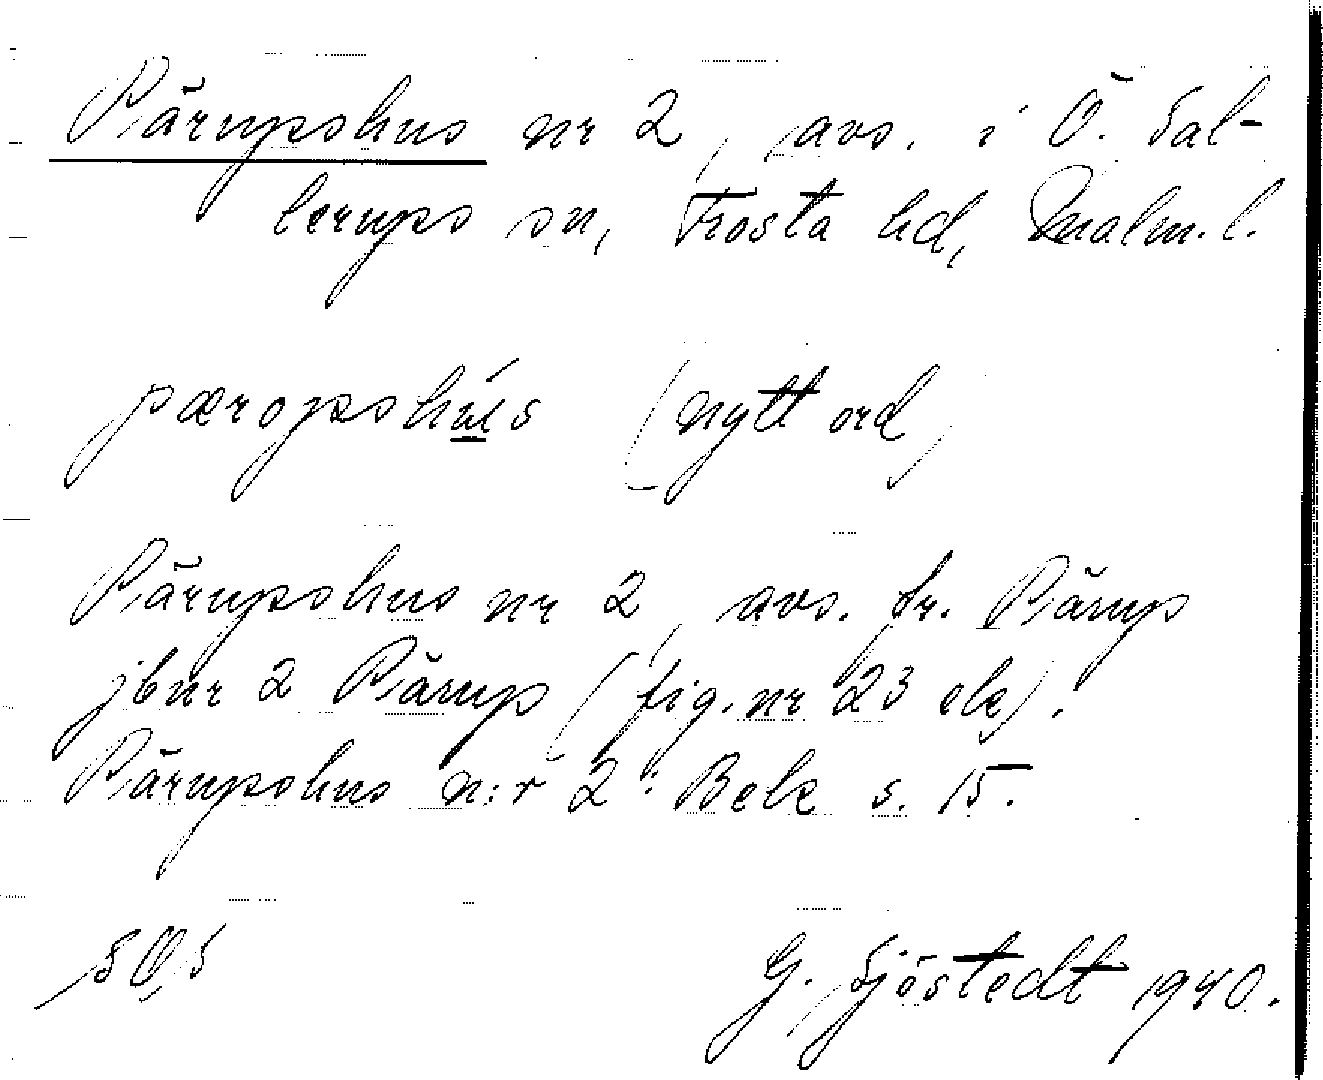 Pärupshus nr 2, avs. i Ö. Sal-
lerups sn, Frosta hd, Malm. l.
pæropshú̲s (nytt ord)
Pärupshus nr 2, avs. fr. Pärup
jbnr 2 Pärup (fig. nr 23 ek).
Pärupshus n:r 2: Bek s. 15.
SOS
G. Sjöstedt 1940.